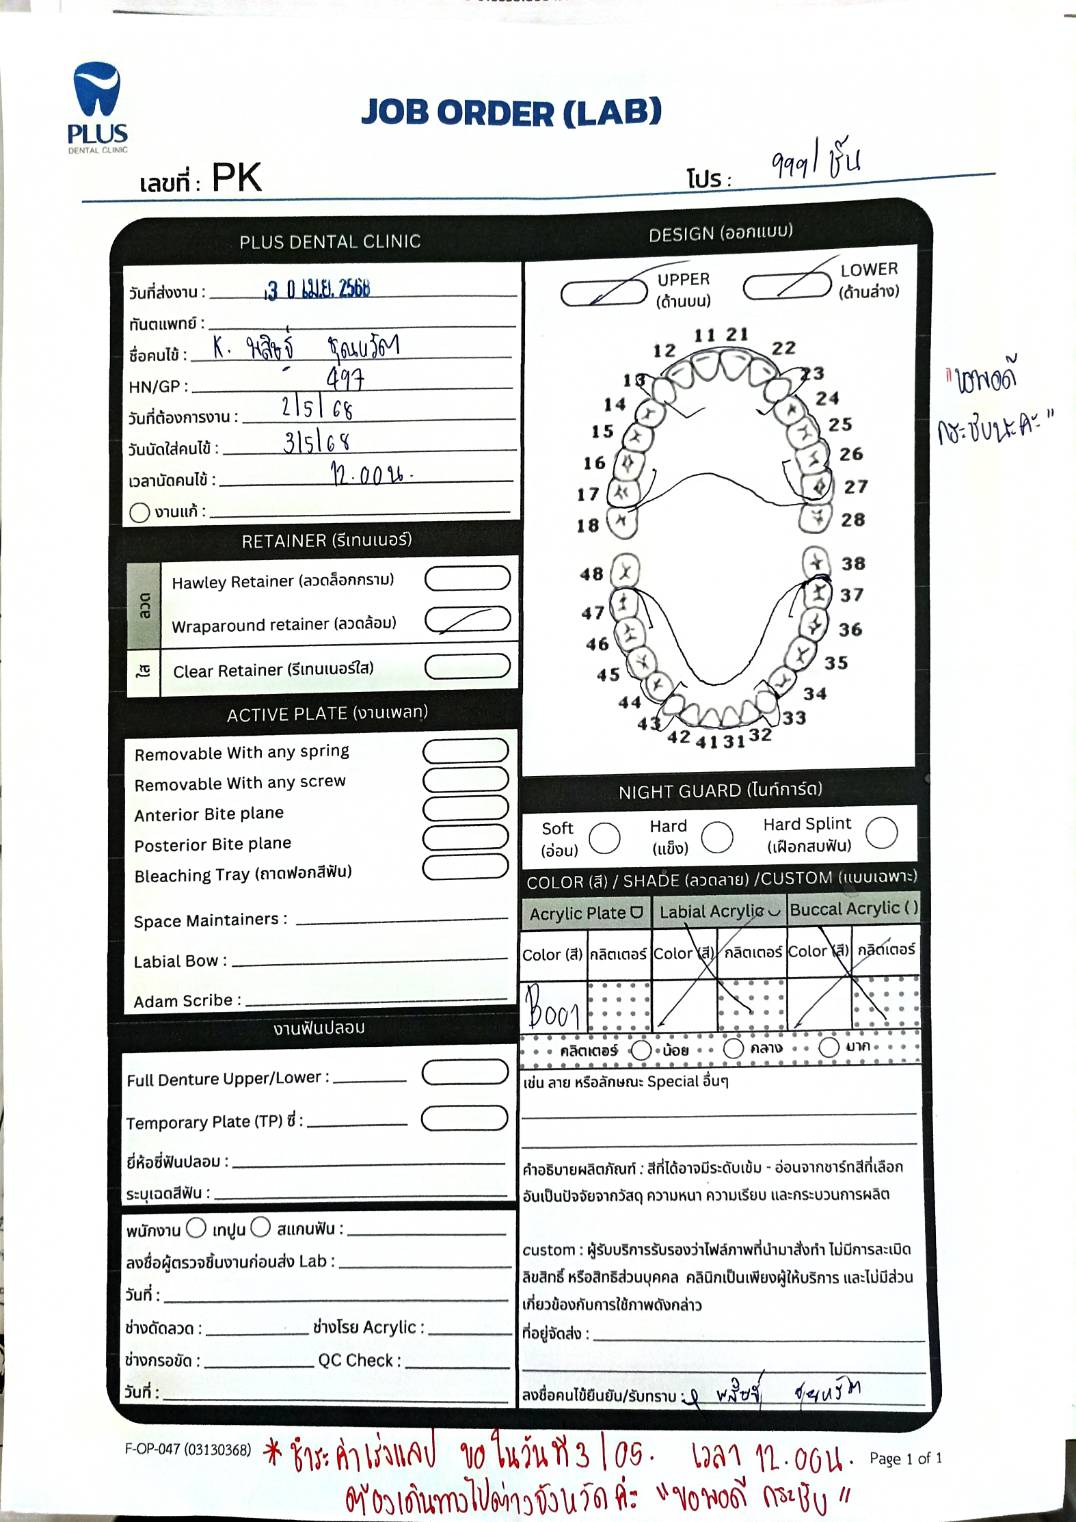 PLUS
DENTAL CLINIC
JOB ORDER (LAB)
เลขที่ : PK
โปร : 999/ชิ้น
PLUS DENTAL CLINIC
วันที่ส่งงาน : 30 เม.ย. 2568
ทันตแพทย์ :
ชื่อคนไข้ : K.
HN/GP : 497
วันที่ต้องการงาน : 2/5/68
วันนัดใส่คนไข้ : 3/5/68
เวลานัดคนไข้ : 12.00น.
งานแก้ :
RETAINER (รีเทนเนอร์)
ลวด
Hawley Retainer (ลวดล็อกกราม)
Wraparound retainer (ลวดล้อม)
ใส
Clear Retainer (รีเทนเนอร์ใส)
ACTIVE PLATE (งานเพลท)
Removable With any spring
Removable With any screw
Anterior Bite plane
Posterior Bite plane
Bleaching Tray (ถาดฟอกสีฟัน)
Space Maintainers :
Labial Bow :
Adam Scribe :
งานฟันปลอม
Full Denture Upper/Lower :
Temporary Plate (TP) ซี่ :
ยี่ห้อซี่ฟันปลอม :
ระบุเฉดสีฟัน :
พนักงาน เทปูน สแกนฟัน :
ลงชื่อผู้ตรวจชิ้นงานก่อนส่ง Lab :
วันที่ :
ช่างดัดลวด : ช่างโรย Acrylic :
ช่างกรอขัด : QC Check :
วันที่ :
DESIGN (ออกแบบ)
UPPER
(ด้านบน)
LOWER
(ด้านล่าง)
11 21
12 22
13 23
14 24
15 25
16 26
17 27
18 28
48 38
47 37
46 36
45 35
44 34
43 33
42 41 31 32
"ขอพอดี
กระชับนะคะ"
NIGHT GUARD (ไนท์การ์ด)
Soft
(อ่อน)
Hard
(แข็ง)
Hard Splint
(เฝือกสบฟัน)
COLOR (สี) / SHADE (ลวดลาย) /CUSTOM (แบบเฉพาะ)
Acrylic Plate Labial Acrylic Buccal Acrylic ( )
Color (สี) กลิตเตอร์ Color (สี) กลิตเตอร์ Color (สี) กลิตเตอร์
B001
กลิตเตอร์ น้อย กลาง มาก
เช่น ลาย หรือลักษณะ Special อื่นๆ
คำอธิบายผลิตภัณฑ์ : สีที่ได้อาจมีระดับเข้ม - อ่อนจากชาร์ทสีที่เลือก
อันเป็นปัจจัยจากวัสดุ ความหนา ความเรียบ และกระบวนการผลิต
custom : ผู้รับบริการรับรองว่าไฟล์ภาพที่นำมาสั่งทำ ไม่มีการละเมิด
ลิขสิทธิ์ หรือสิทธิส่วนบุคคล คลินิกเป็นเพียงผู้ให้บริการ และไม่มีส่วน
เกี่ยวข้องกับการใช้ภาพดังกล่าว
ที่อยู่จัดส่ง :
ลงชื่อคนไข้ยืนยัน/รับทราบ :
F-OP-047 (03130368)
*ชำระค่าเร่งแลป ขอในวันที่ 3/05. เวลา 12.00น.
ต้องเดินทางไปต่างจังหวัดค่ะ "ขอพอดี กระชับ"
Page 1 of 1